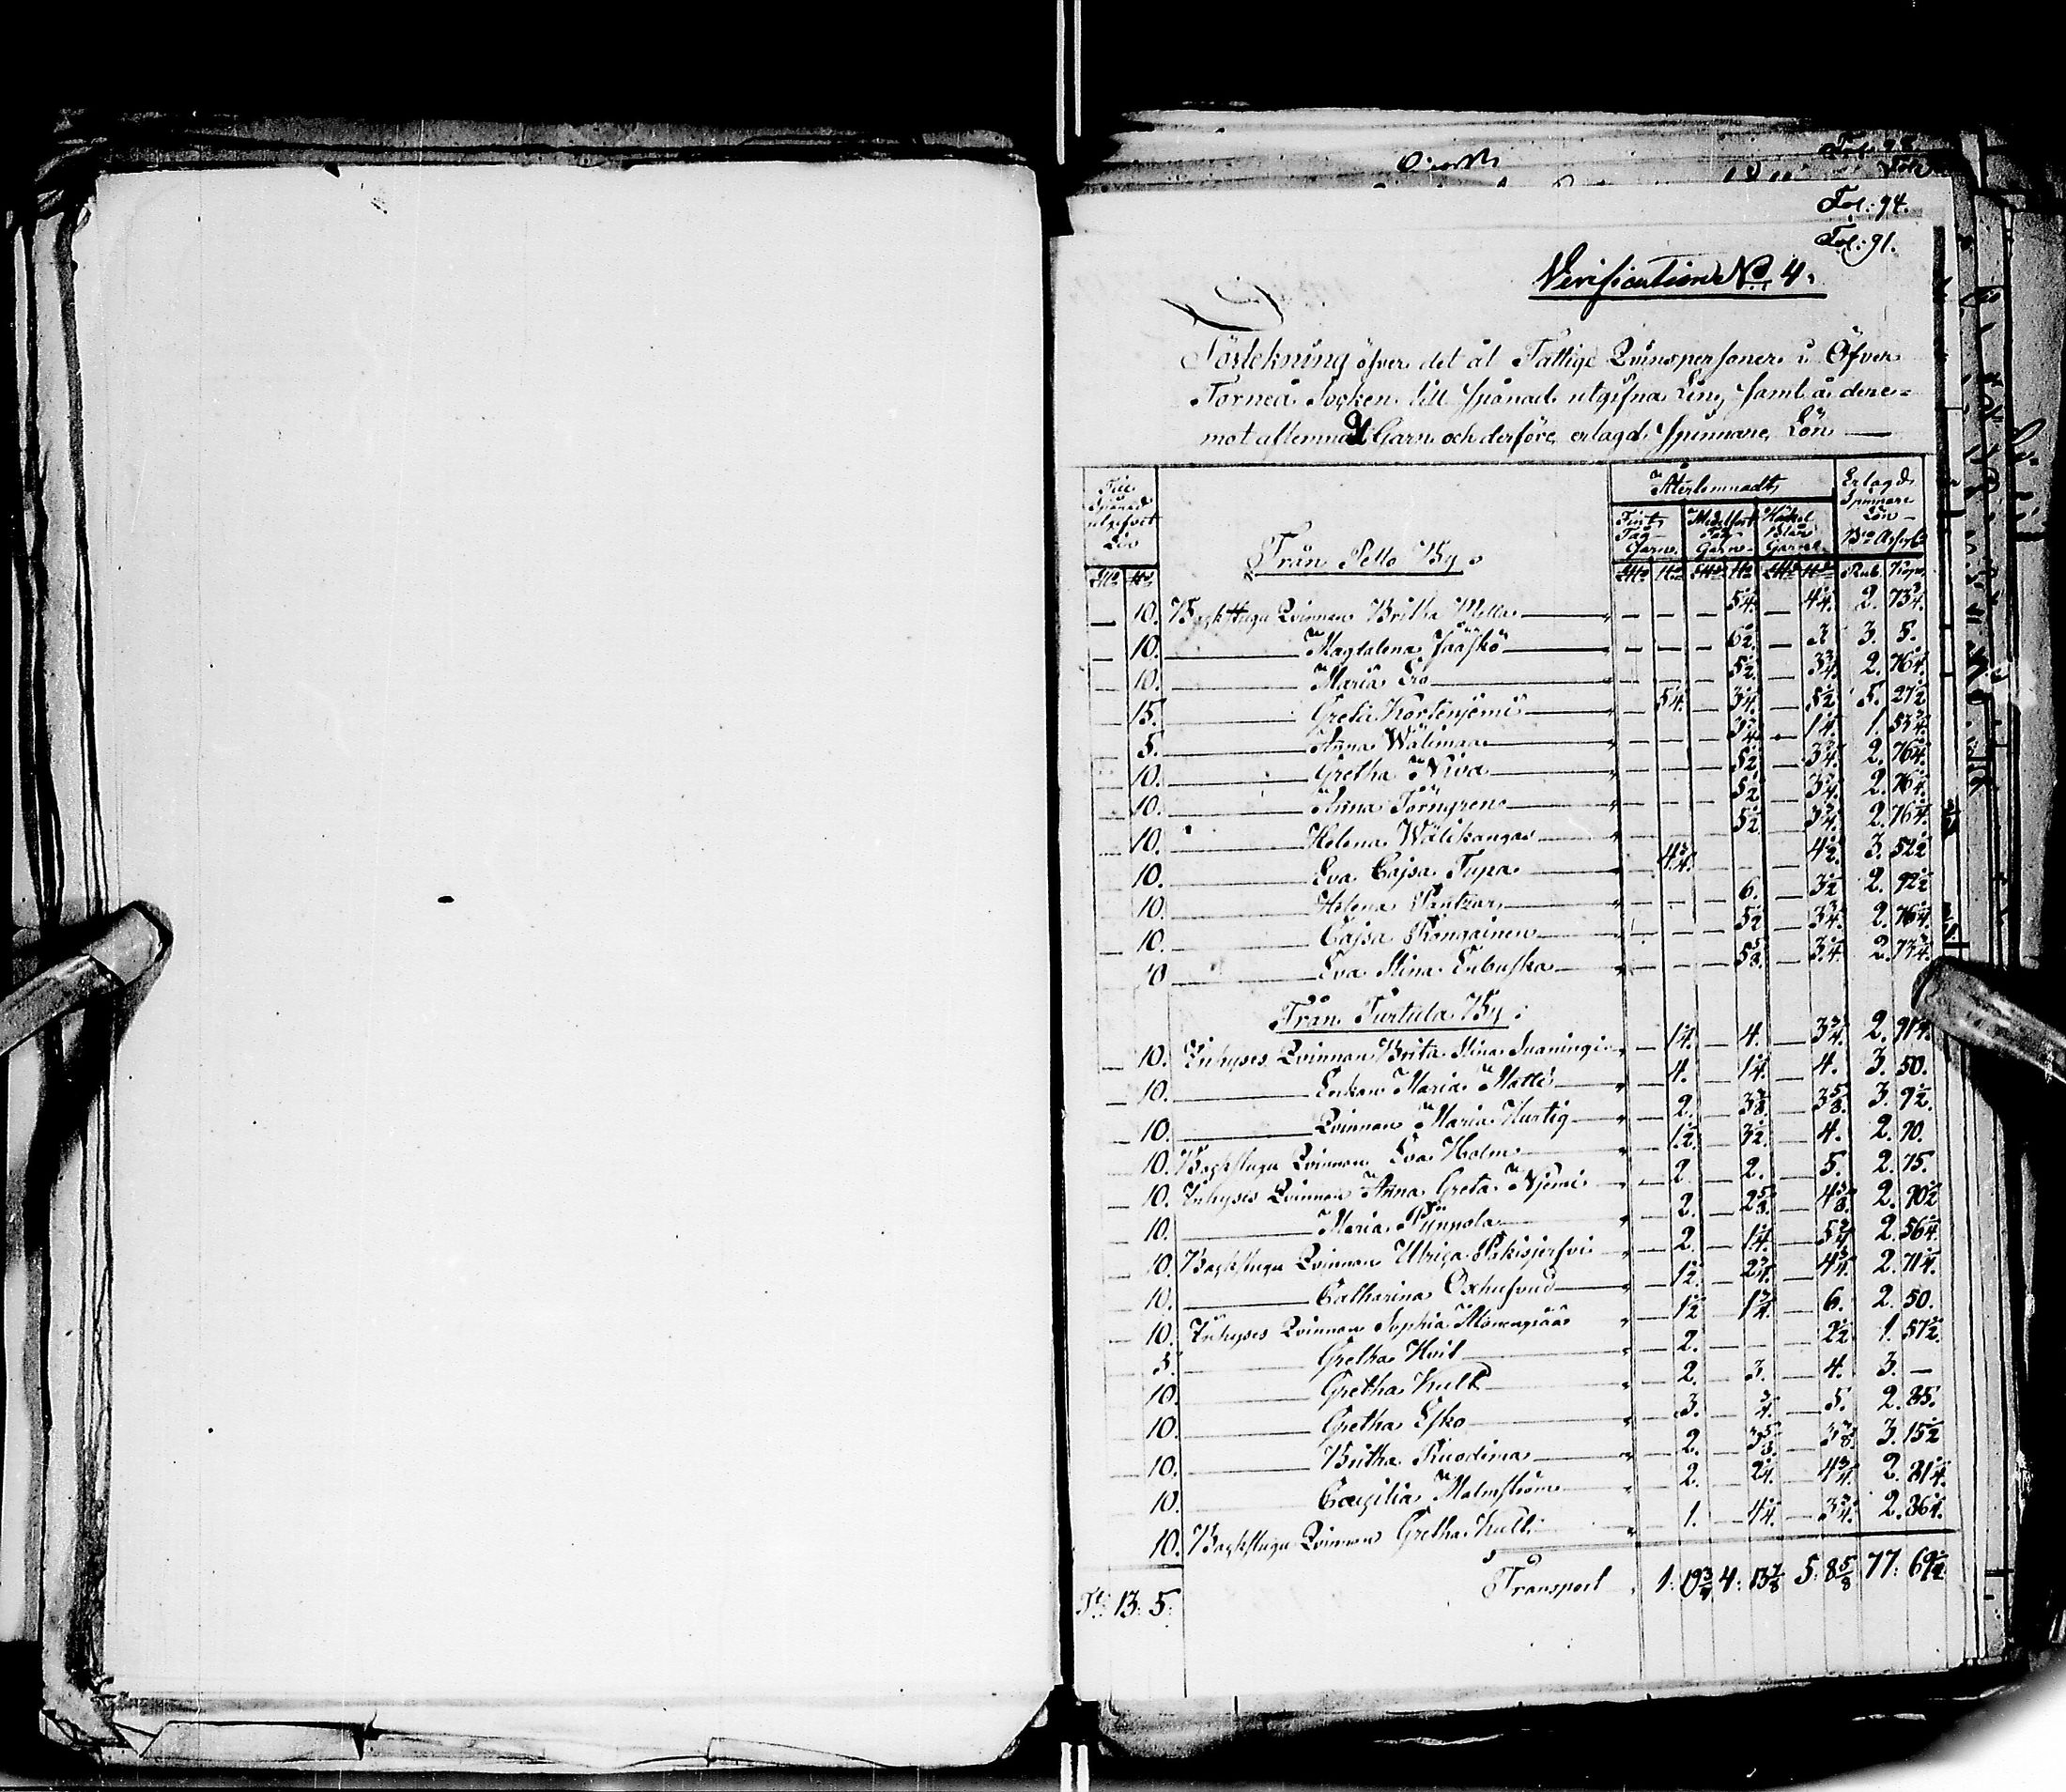 Fol: 94.
Fol: 91.
Verification No 4.
Förtekning öfver det åt Fattige Qvinspersoner i Öfver
Torneå Socken till Spånad utgifna Lin, samt å dere=
mot aflemnadt Garn och derföre erlagd Spinnare Lön —
Till Spånad utgifvet Lin
Återlemnadt
Erlagd Spinnare Lön
Fint Tåg Garn
Medelfort Tåg Garn
Häckel Blår Garn
Bco Assign
L℔ ℔
Från Pello By:
L℔ ℔ L℔ ℔ L℔ ℔ Rub. Kop.
— 10. Backstugu Qvinnan Britha Mella — — — 5 1/4. — 4 1/4. 2. 73 3/4.
— 10. Magdalena Jääskö — — — 6 1/2. — 3. 3. 5.
— 10. Maria Ero — — — 5 1/2. — 3 3/4. 2. 76 1/4.
15. Greta Kortenjemi — 5 1/4. — 3 1/4. — 5 1/2. 5. 27 1/2
5. Anna Wälimaa — — — 3 3/4. — 1 1/4. 1. 53 3/4.
10. Gretha Niva — — — 5 1/2. — 3 3/4. 2. 76 1/4.
10. Anna Törngren — — — 5 1/2 — 3 3/4. 2. 76 1/4.
— 10. Helena Wälikangas — — — 5 1/2 — 3 3/4. 2. 76 1/4.
10. Eva Cajsa Tupa — 4 3/4. — — — 4 1/2. 3. 52 1/2
10. Helena Pantzar — — — 6. — 3 1/2 2. 92 1/2
— 10. Cajsa Kongainen — — — 5 1/2 — 3 3/4. 2. 76 1/4.
— 10 Eva Stina — — — 5 5/8. — 3 1/4 2. 73 3/4.
Från Turtula By:
— 10. Inhyses Qvinnan Brita Stina — 1 1/4. — 4. — 3 3/4. 2. 91 1/4.
— 10. Enkan Maria Matti — 4. — 1 1/4. — 4. 3. 50.
— 10. Qvinnan Maria Hurtig — 2. — 3 3/8. — 3 5/8. 3. 9 1/2.
— 10. Backstugu Qvinnan Eva Holm — 1 1/2. — 3 1/2. — 4. 2. 70.
— 10. Inhyses Qvinnan Anna Greta Njemi — 2. — 2. — 5. 2. 75.
— 10. Maria — 2. — 2 5/8. — 4 5/8. 2. 90 1/2
— 10. Backstugu Qvinnan Ulrica Pakisjerfvi — 2. — 1 1/4. — 5 3/4 2. 56 1/4.
— 10. Catharina Oxhufvud — 1 1/2. — 2 3/4. — 4 3/4. 2. 71 1/4.
— 10. Inhyses Qvinnan Sophia — 1 1/2 — 1 3/4. — 6. 2. 50.
— 5. Gretha Hvit — 2. — — — 2 1/2 1. 57 1/2.
10. Gretha Kult — 2. — 3. — 4. 3. —
— 10. Gretha Esko — 3. — 3/4. — 5. 2. 85.
— 10. Britha — 2. — 3 5/8. — 3 7/8. 3. 15 1/2
— 10. Caecilia Malmström — 2. — 2 1/4. — 4 3/4. 2. 81 1/4.
10. Backstugu Qvinnan Gretha Kult — 1. — 4 1/4. — 3 3/4. 2. 86 1/4.
13: 5. Transport 1: 19 3/4 4: 13 7/8 5: 8 5/8 77: 69 1/2.